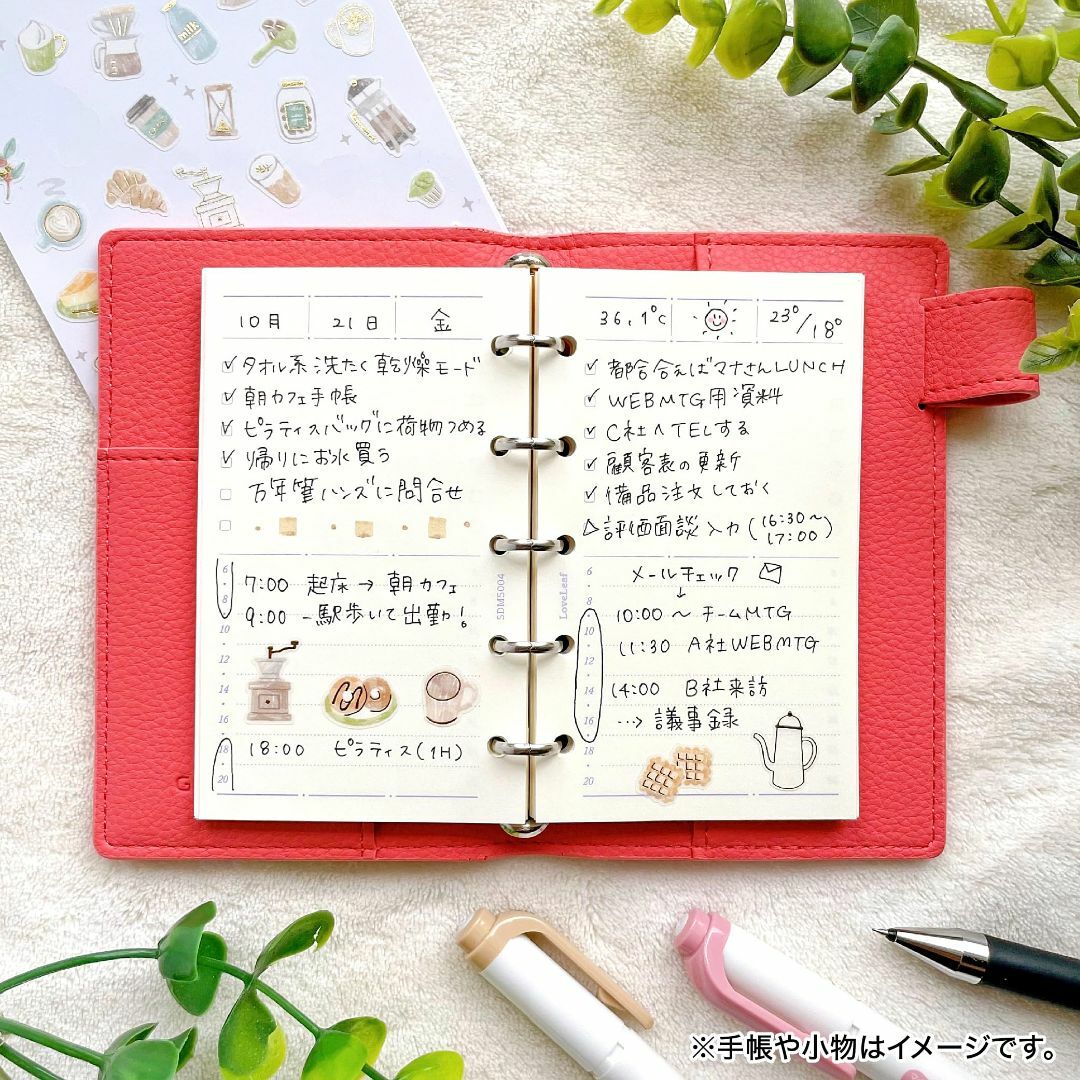 milk
10月 21日 金
✓タオル系洗たく乾燥モード
✓朝カフェ手帳
✓ピラティスバッグに荷物つめる
✓帰りにお水買う
□万年筆ハンズに問合せ
6
8
10
12
14
16
18
20
7:00 起床→朝カフェ
9:00 一駅歩いて出勤!
18:00 ピラティス(1H)
SDM5004
36,1℃ 23°/18°
✓都合合えばマナさんLUNCH
✓WEBMTG用資料
✓C社へTELする
✓顧客表の更新
✓備品注文しておく
△評価面談入力(16:30~17:00)
LoveLeaf
6
8
10
12
14
16
18
20
メールチェック
↓
10:00~チームMTG
11:30 A社WEBMTG
14:00 B社来訪
…→議事録
G
※手帳や小物はイメージです。